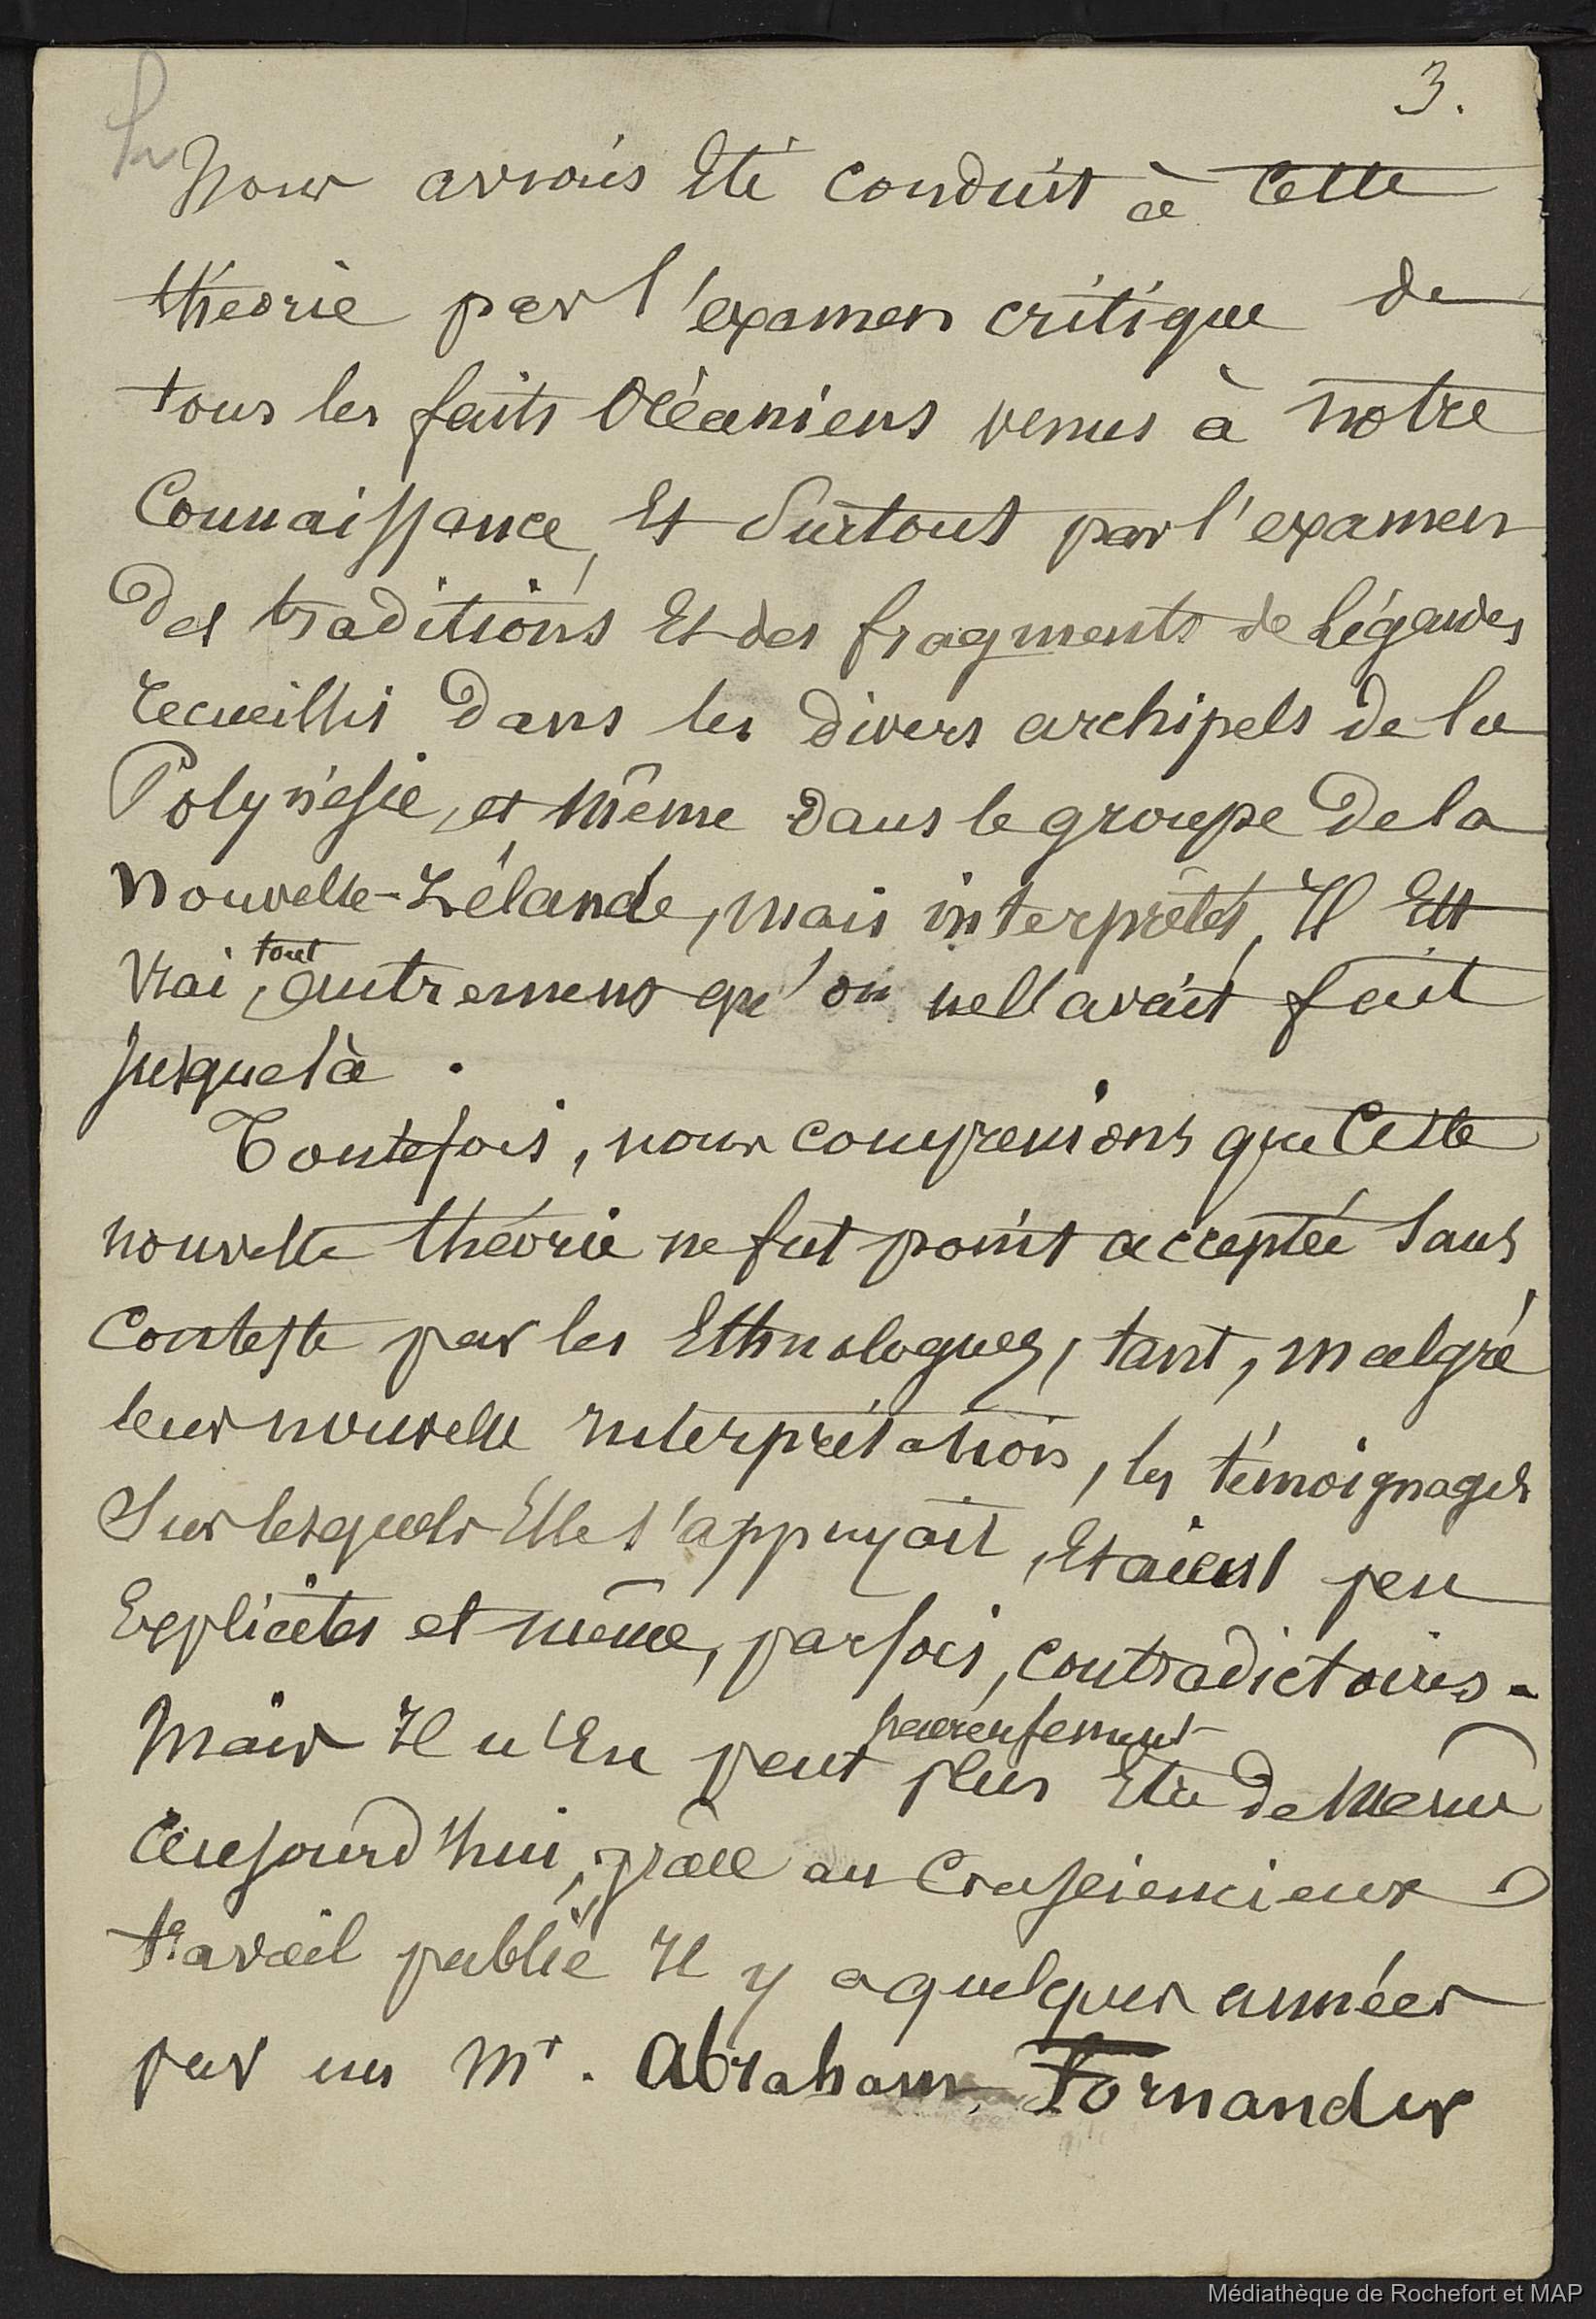 3.
Nous avions Eté conduit à Cette
théorie par l'examen critique de
tous les faits Océaniens venus à notre
Connaissance, Et Surtout par l'examen
Des traditions Et des fragments de Légendes
recueillis Dans les Divers archipels de la
Polynésie, et même dans le groupe De la
Nouvelle-Zélande, mais interprétés, Il Est
Vrai, tout autrement qu'on ne l'avait fait
jusque là.
Toutefois, nous comprenions que Cette
nouvelle théorie ne fut point acceptée Sans
Conteste par les Ethnologues, tant, malgré
leur nouvelle interprétation, les témoignages
Sur lesquels Elle s'appuyait, Etaient peu
Explicites et même, parfois, contradictoires.
Mais Il n'En peut heureusement plus Etre De même
Aujourd'hui, grâce au Consciencieux
travail publié Il y a quelques années
par un Mr. Abraham, Fornander
Médiathèque de Rochefort et MAP